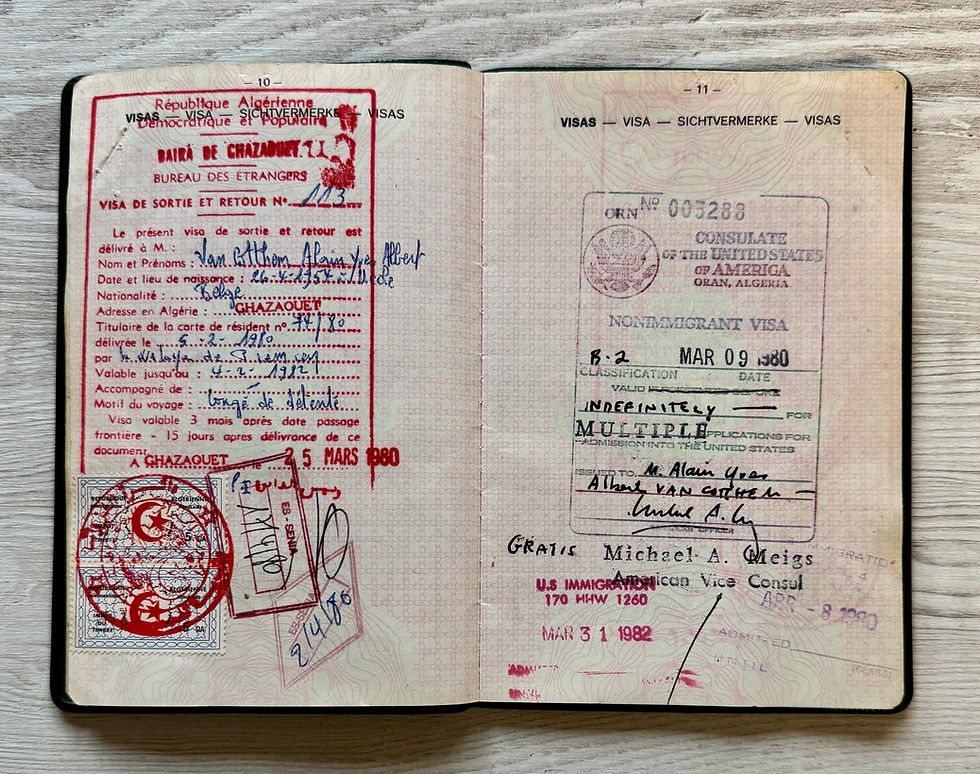 — 10 —
VISAS — VISA — SICHTVERMERKE — VISAS
République Algérienne
Démocratique et Populaire
DAIRA DE GHAZAOUET
BUREAU DES ETRANGERS
VISA DE SORTIE ET RETOUR N° 113
Le présent visa de sortie et retour est
délivré à M. :
Nom et Prénoms : Van Cotthem Alain Yves Albert
Date et lieu de naissance : 26-4-1954 à Uccle
Nationalité : Belge
Adresse en Algérie : GHAZAOUET
Titulaire de la carte de résident n° 74/80
délivrée le 5-2-1980
par la wilaya de Tlemcen
Valable jusqu'au : 4-2-1982
Accompagné de : —
Motif du voyage : Congé de détente
Visa valable 3 mois après date passage
frontière - 15 jours apres délivrance de ce
document.
A GHAZAOUET le 25 MARS 1980
ES-SENIA
2/4/80
— 11 —
VISAS — VISA — SICHTVERMERKE — VISAS
ORN No 003288
CONSULATE
OF THE UNITED STATES
OF AMERICA
ORAN, ALGERIA
NONIMMIGRANT VISA
B-2 MAR 09 1980
CLASSIFICATION DATE
VALID
INDEFINITELY — FOR
MULTIPLE APPLICATIONS FOR
ADMISSION INTO THE UNITED STATES
ISSUED TO M. Alain Yves
Albert VAN COTTHEM —
GRATIS Michael A. Meigs
American Vice Consul
U.S IMMIGRATION
170 HHW 1260
MAR 31 1982
ADMITTED
APR - 8 1980
ADMITTED
UNTIL
(CLASS)